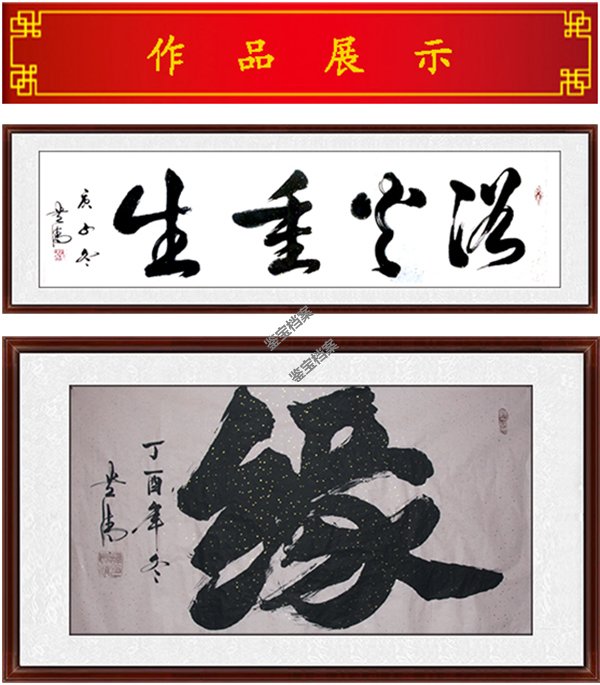 作品展示
浴火重生
庚子冬
鉴宝档案
鉴宝档案
缘
丁酉年冬